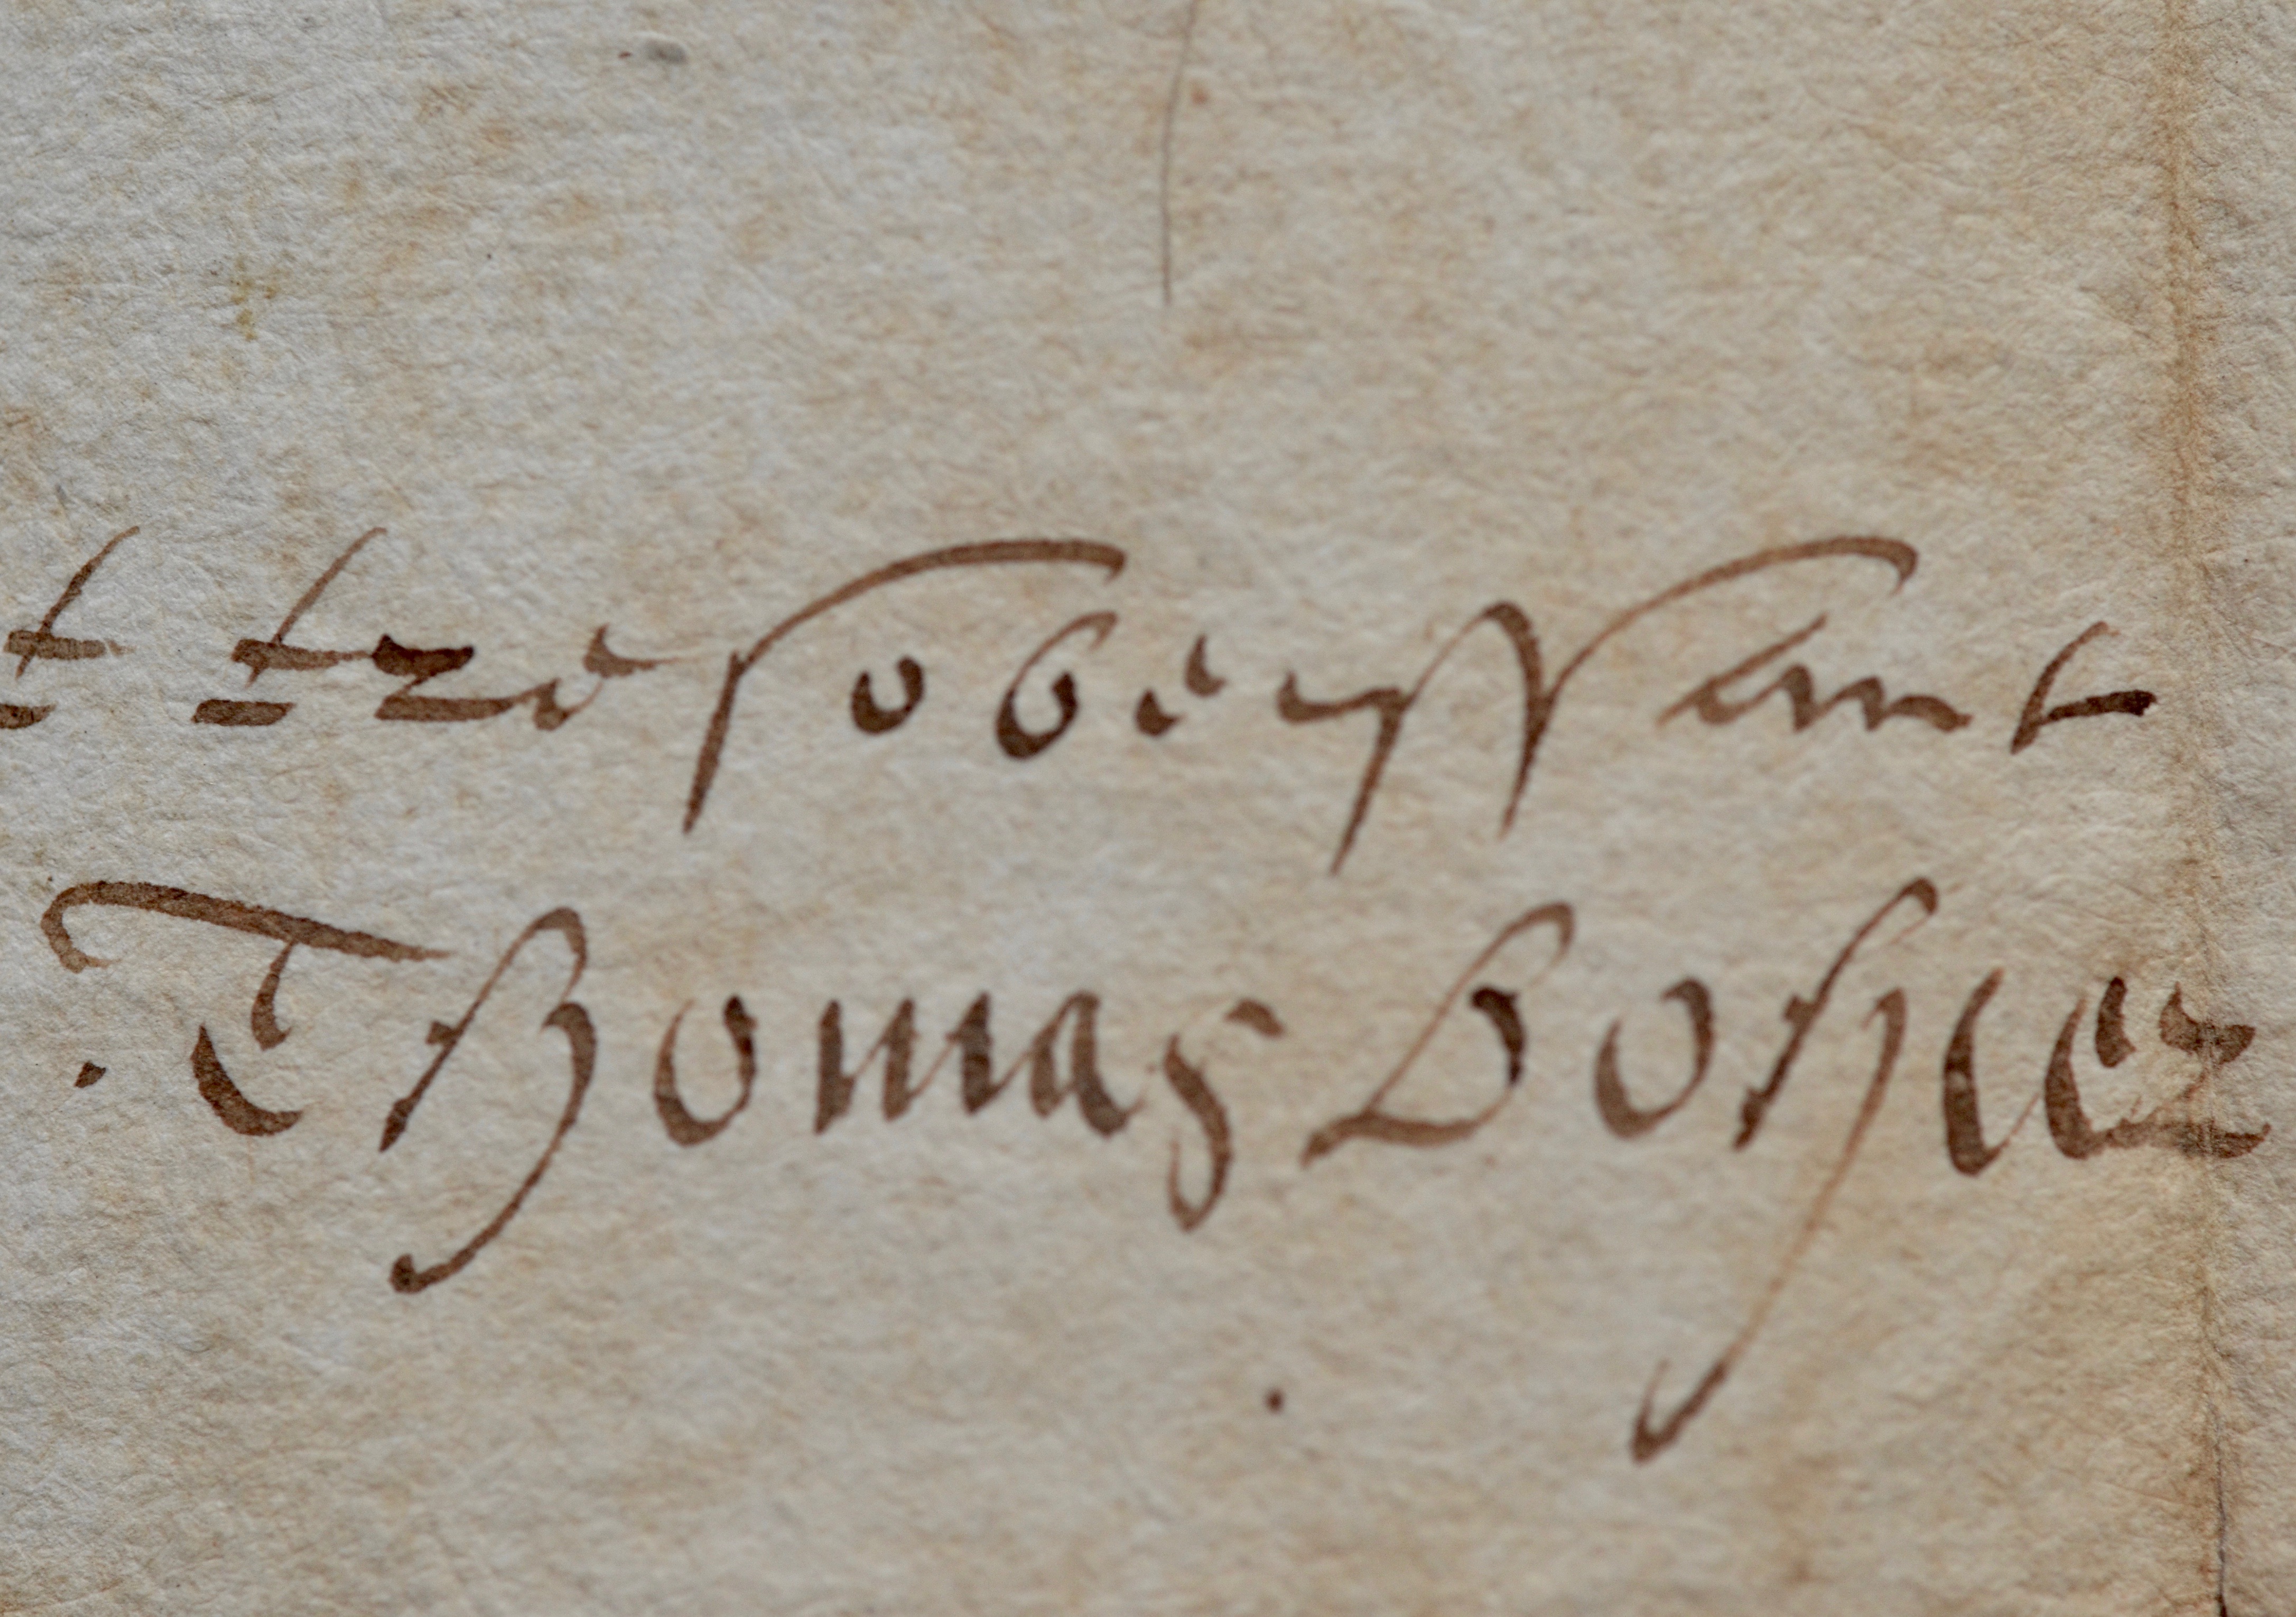 t tresobeissant
Thomas Bohier